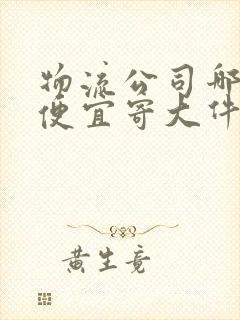 物流公司哪
便宜寄大件
黄生竟